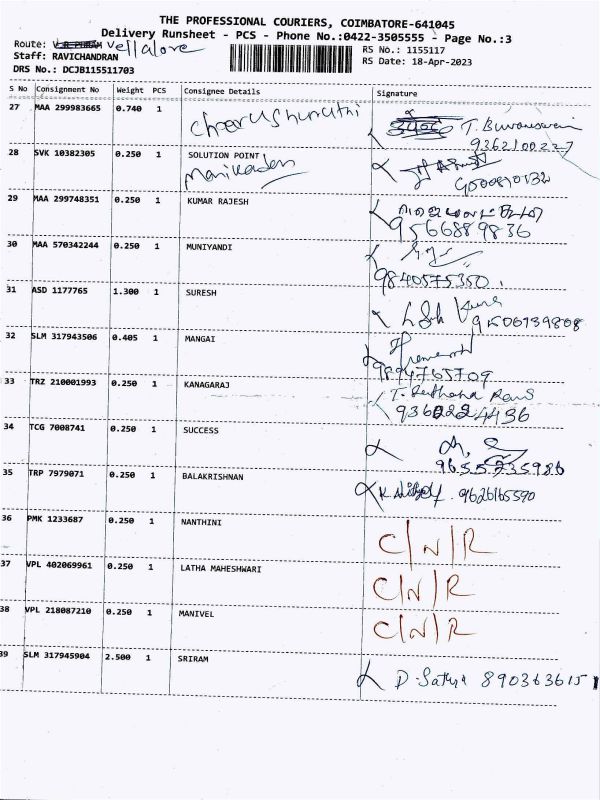 THE PROFESSIONAL COURIERS, COIMBATORE-641045
Delivery Runsheet - PCS - Phone No.:0422-3505555 - Page No.:3
Route: Vellalore
Staff: RAVICHANDRAN
DRS No.: DCJB115511703
RS No.: 1155117
RS Date: 18-Apr-2023
S No Consignment No Weight PCS Consignee Details Signature
27 MAA 299983665 0.740 1 T. Buvaneswari
9362100227
28 SVK 10382305 0.250 1 SOLUTION POINT
Manikandan 9500810132
29 MAA 299748351 0.250 1 KUMAR RAJESH
9566889836
30 MAA 570342244 0.250 1 MUNIYANDI
9840575350
31 ASD 1177765 1.300 1 SURESH
91506139808
32 SLM 317943506 0.405 1 MANGAI
9894765709
33 TRZ 210001993 0.250 1 KANAGARAJ
9360224436
34 TCG 7008741 0.250 1 SUCCESS
9655235986
35 TRP 7979071 0.250 1 BALAKRISHNAN 9626165590
36 PMK 1233687 0.250 1 NANTHINI C/N/R
37 VPL 402069961 0.250 1 LATHA MAHESHWARI C/N/R
38 VPL 218087210 0.250 1 MANIVEL C/N/R
39 SLM 317945904 2.500 1 SRIRAM D. Sathya 8903636151